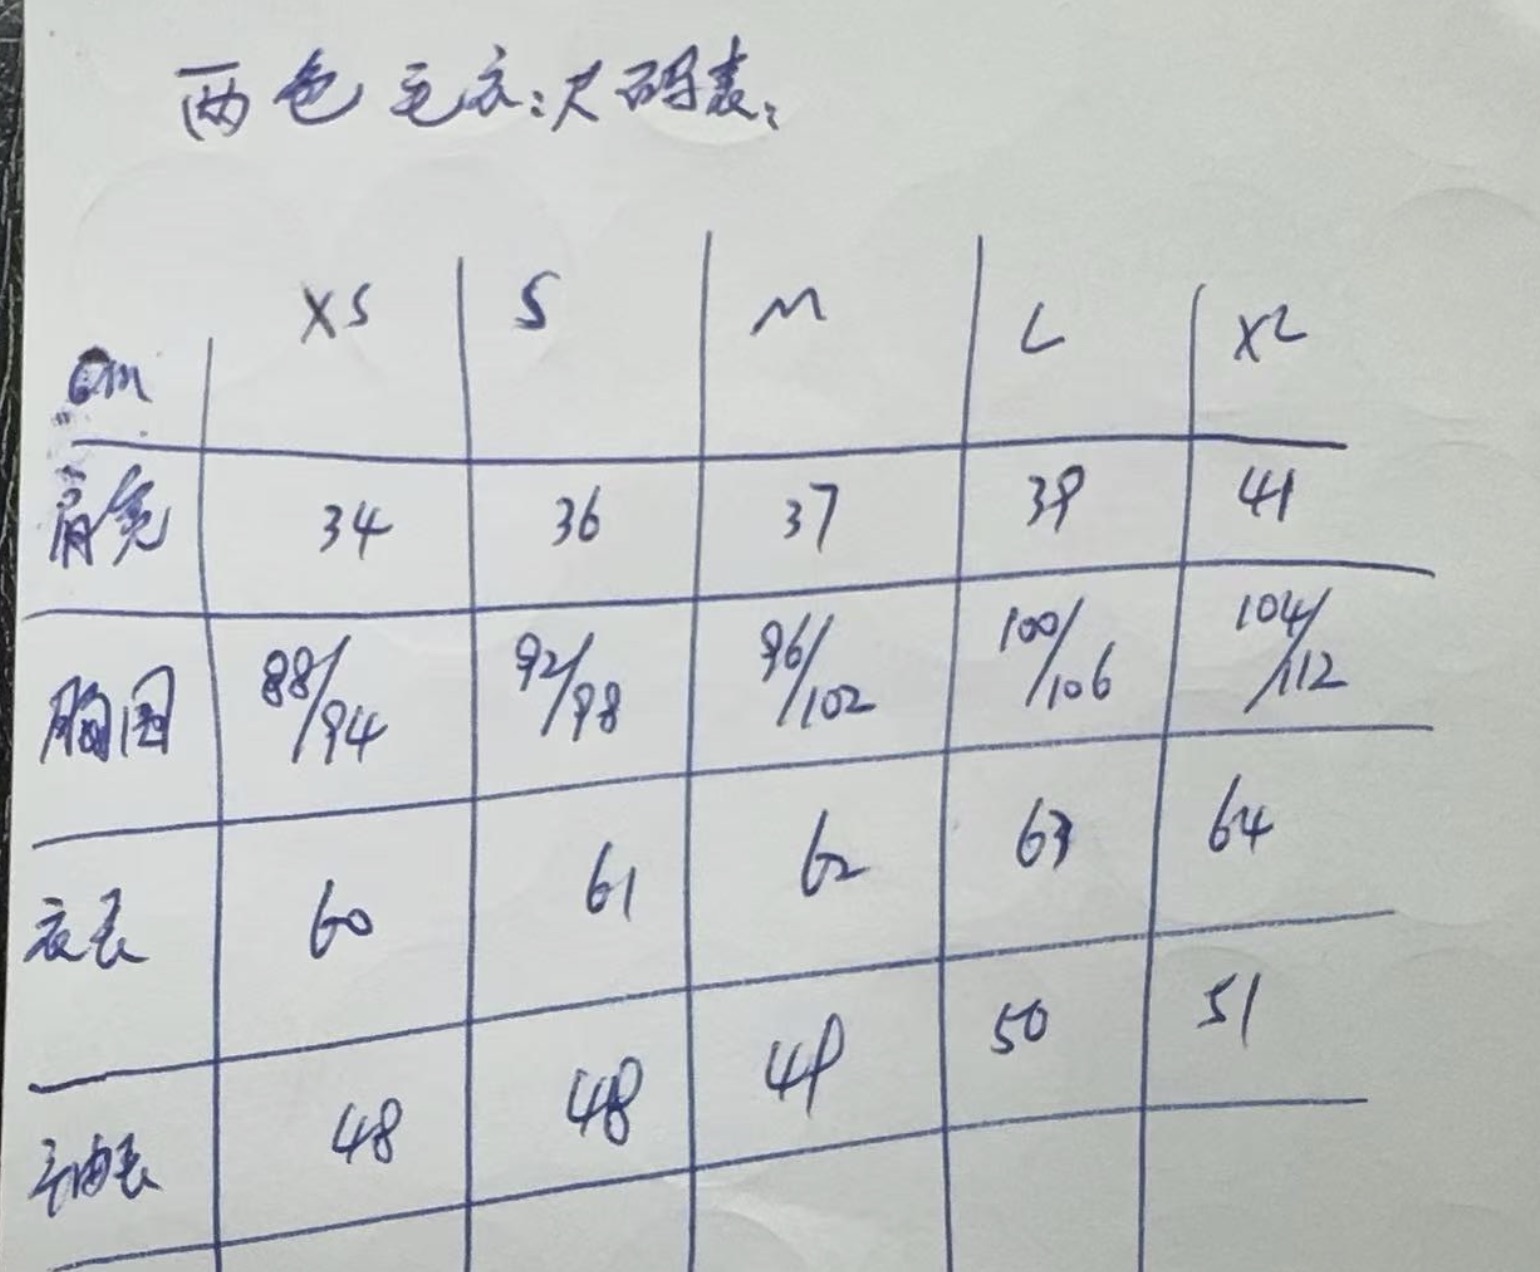 两色毛衣：尺码表：
cm XS S M L XL
肩宽 34 36 37 39 41
胸围 88/94 92/98 96/102 100/106 104/112
衣长 60 61 62 63 64
袖长 48 48 49 50 51